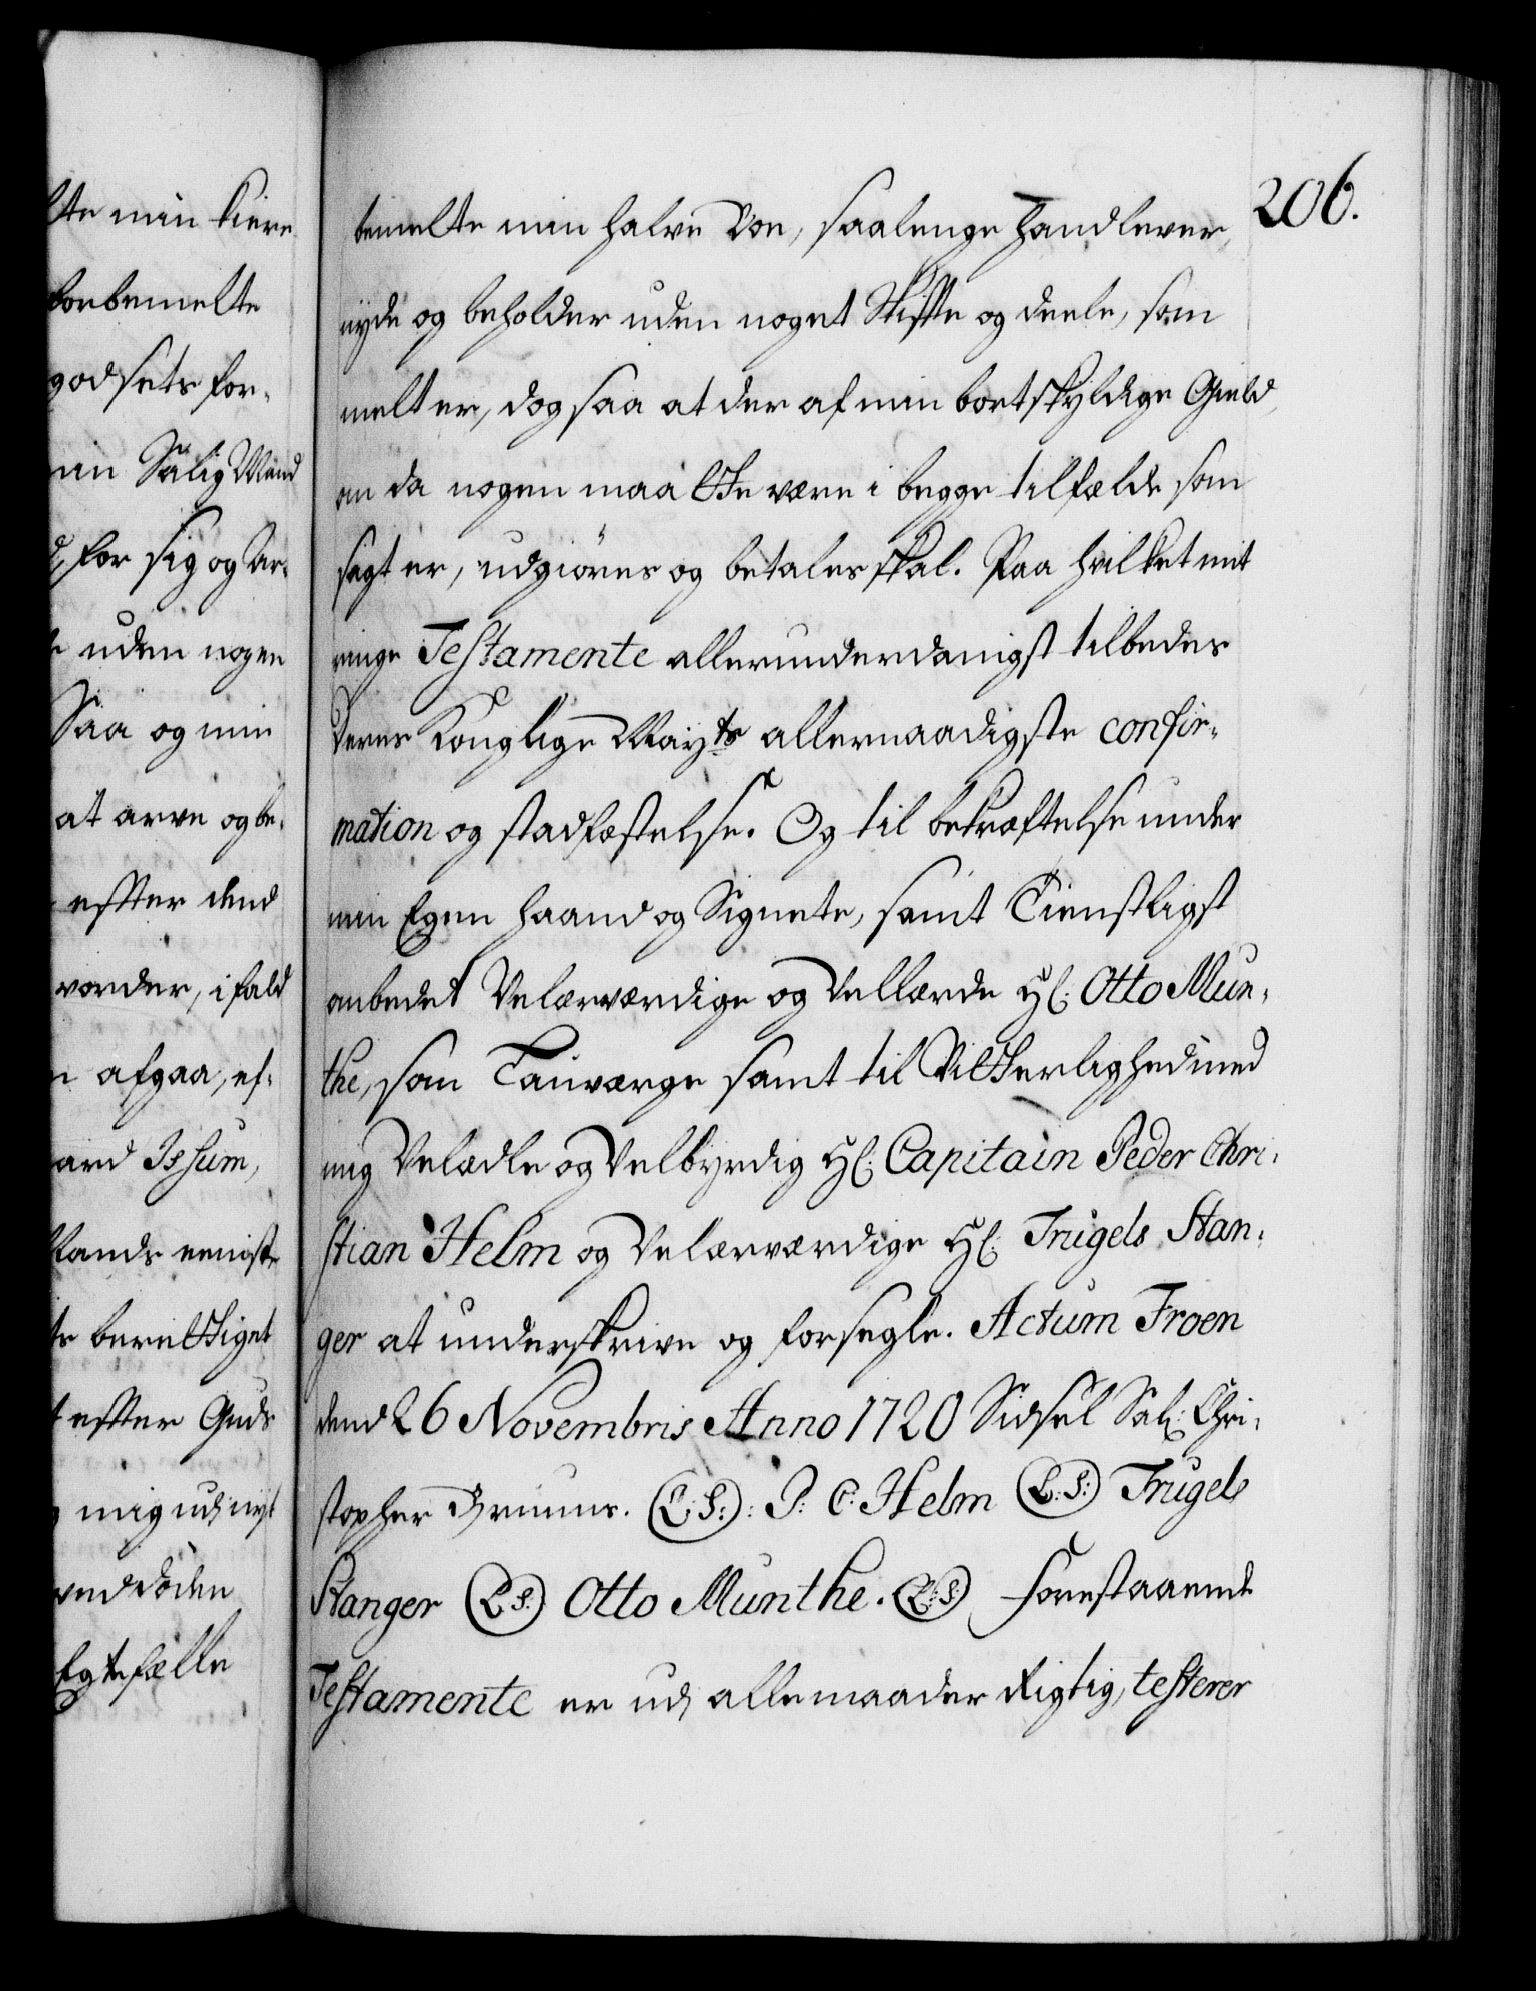 206.
lte min kiere
forbemelte
godsets for-
min Sälig Mand
d, for sig og Ar-
t uden nogen
Saa og min
at arve og be-
effter dend
vorder, ifald
n afgaa, ef-
ard Issum,
llands eeniste
te berettiget
t effter Guds
mig udj nyt
ved döden
Egtefælle
bemelte min halve Boe, saalenge hand lever,
nyde og beholder uden noget Skiffte og deele, som
melt er, dog saa at der af min bortskyldige Gield,
om da nogen maatte være i begge tilfælde som
sagt er, udgiöres og betales skal. Paa hvilket mit
ringe Testamente allerunderdanigst tilbedes
Deres Konglige Mayts allernaadigste confir-
mation og stadfæstelse. Og til bekræftelse under
min Egen haand og Signete, samt Tienstligst
anbedet Velærværdige og Vellærde Hl: Otto Mun-
the, som Laugværge samt til Vitterlighed med
mig Velædle og Velbyrdig Hl: Capitain Peder Chri-
stian Helm og Velærværdige Hl: Trugels Stan-
ger at underskrive og forsegle. Actum Froen
dend 26 Novembris Anno 1720 Sidsel Sal: Chri-
stopher Grums. (L:S:): P: C: Helm (L:S:) Trugels
Stanger (L:S:) Otto Munthe. (L:S:) Forestaaende
Testamente er udj alle maader Rigtig, testerer